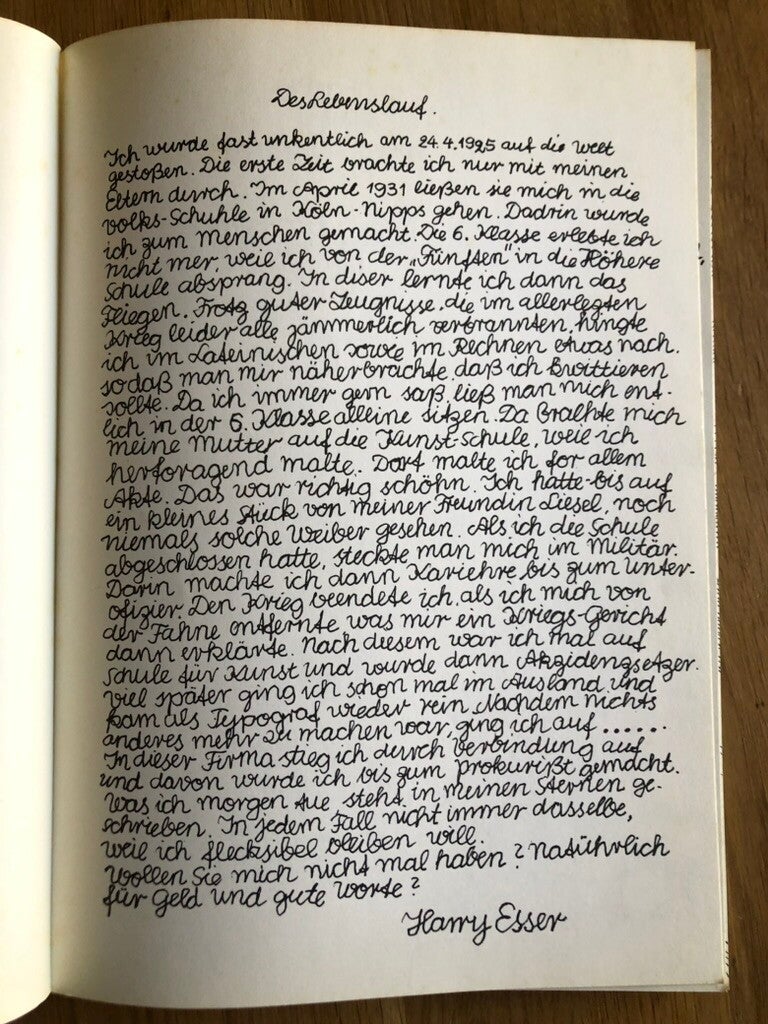 Des Lebenslauf.
Ich wurde fast unkentlich am 24.4.1925 auf die Welt
gestoßen. Die erste Zeit brachte ich nur mit meinen
Eltern durch. Im April 1931 ließen sie mich in die
Volks-Schuhle in Köln-Nipps gehen. Dadrin wurde
ich zum Menschen gemacht. Die 6. Klasse erlebte ich
nicht mer, weil ich von der „Fünften" in die Höhere
Schule absprang. In diser lernte ich dann das
Fliegen. Trotz guter Zeugnisse, die im allerlezten
Krieg leider alle jämmerlich verbrannten, hingte
ich im Lateinischen sowie im Rechnen etwas nach.
sodaß man mir näherbrachte, daß ich kwittieren
sollte. Da ich immer gern saß, ließ man mich ent-
lich in der 6. Klasse alleine sitzen. Da brachte mich
meine Mutter auf die Kunst-Schule, weil ich
herforagend malte. Dort malte ich for allem
Akte. Das war richtig schöhn. Ich hatte-bis auf
ein kleines Stück von meiner Freundin Liesel, noch
niemals solche Weiber gesehen. Als ich die Schule
abgeschlossen hatte, steckte man mich im Militär.
Darin machte ich dann Kariehre bis zum Unter-
ofizier. Den Krieg beendete ich, als ich mich von
der Fahne entfernte was mir ein Kriegs-Gericht
dann erklärte. Nach diesem war ich mal auf
Schule für Kunst und wurde dann Akzidenzsetzer.
Viel später ging ich schon mal im Ausland und
kam als Typograf wieder rein. Nachdem nichts
anderes mehr zu machen war, ging ich auf ......
In dieser Firma stieg ich durch Verbindung auf
und davon wurde ich bis zum Prokurißt gemacht.
Was ich morgen tue steht in meinen Sternen ge-
schrieben. In jedem Fall nicht immer dasselbe,
weil ich flecksibel bleiben will.
Wollen Sie mich nicht mal haben? Natührlich
für Geld und gute Worte?
Harry Esser